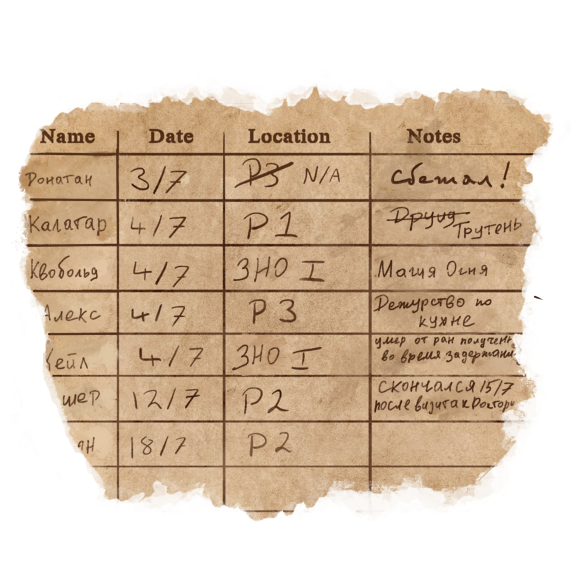 Name Date Location Notes
Донатан 3/7 P3 N/A сбежал!
Калатар 4/7 P1 Друид Трутень
Квобольд 4/7 ЗНО I Магия Огня
Алекс 4/7 P3 Дежурство по
кухне
кейл 4/7 ЗНО I умер от ран получен
во время задержани
шер 12/7 P2 скончался 15/7
после визита к Доктору
ян 18/7 P2